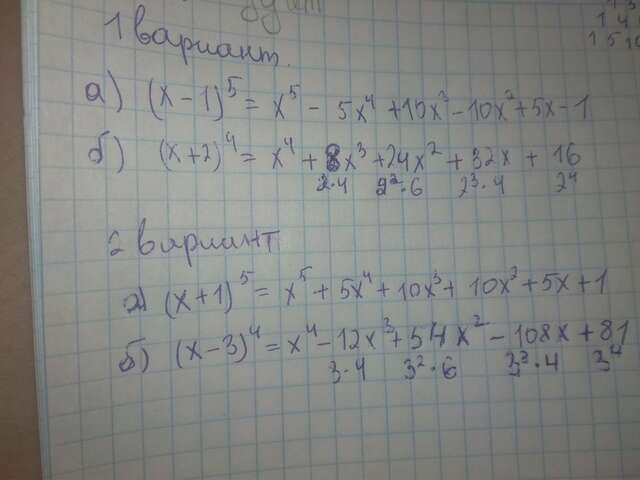 1 4
1 5 10
1 вариант.
а) (x-1)⁵ = x⁵ - 5x⁴ + 10x³ - 10x² + 5x - 1
б) (x+2)⁴ = x⁴ + 8x³ + 24x² + 32x + 16
2·4 2²·6 2³·4 2⁴
2 вариант
а) (x+1)⁵ = x⁵ + 5x⁴ + 10x³ + 10x² + 5x + 1
б) (x-3)⁴ = x⁴ - 12x³ + 54x² - 108x + 81
3·4 3²·6 3³·4 3⁴